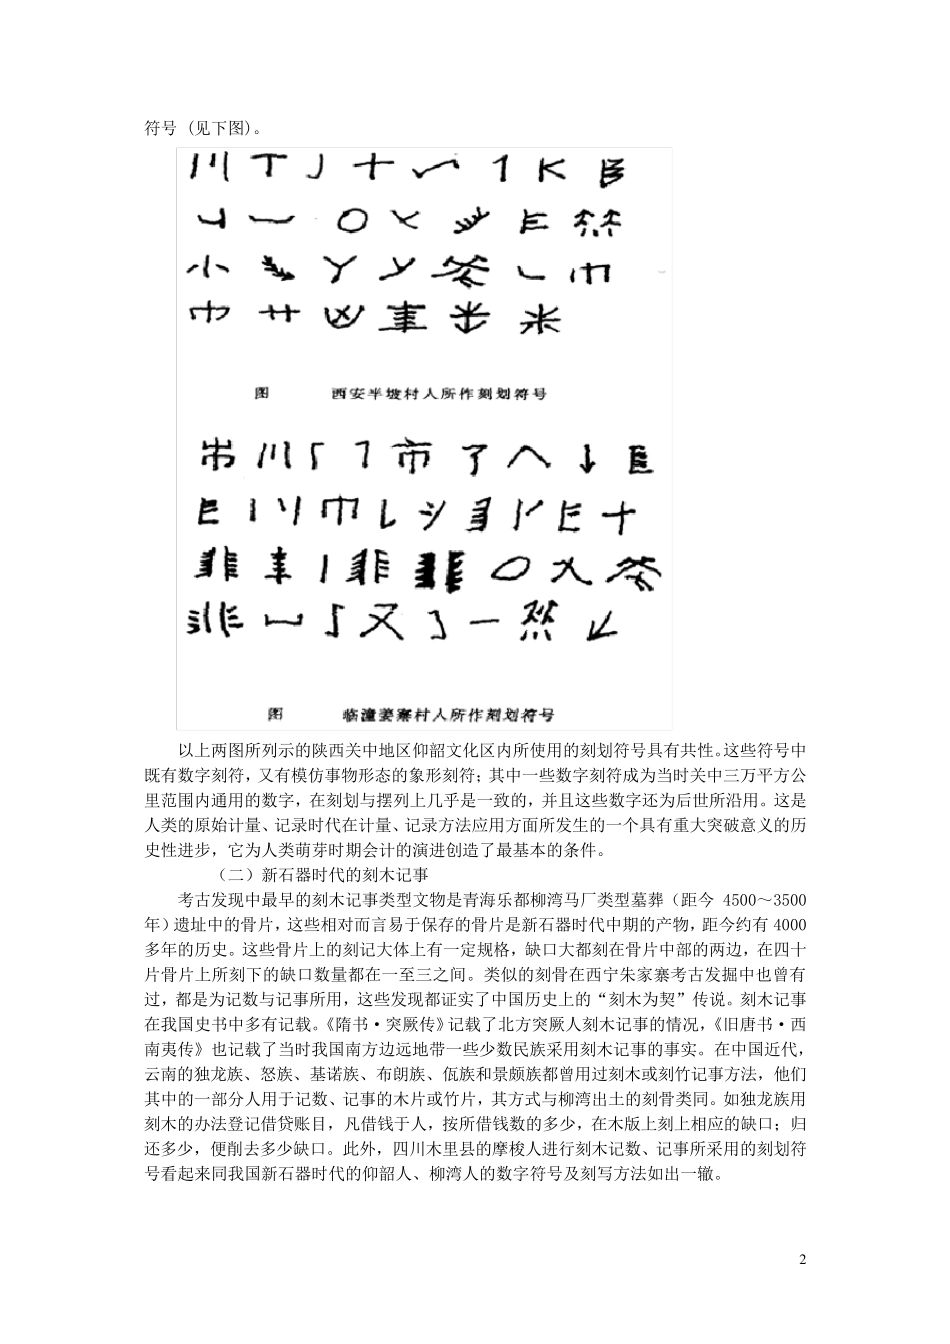 符号 (见下图)。
图 西安半坡村人所作刻划符号
图 临潼姜寨村人所作刻划符号
以上两图所列示的陕西关中地区仰韶文化区内所使用的刻划符号具有共性。这些符号中
既有数字刻符，又有模仿事物形态的象形刻符；其中一些数字刻符成为当时关中三万平方公
里范围内通用的数字，在刻划与摆列上几乎是一致的，并且这些数字还为后世所沿用。这是
人类的原始计量、记录时代在计量、记录方法应用方面所发生的一个具有重大突破意义的历
史性进步，它为人类萌芽时期会计的演进创造了最基本的条件。
（二）新石器时代的刻木记事
考古发现中最早的刻木记事类型文物是青海乐都柳湾马厂类型墓葬（距今 4500～3500
年)遗址中的骨片，这些相对而言易于保存的骨片是新石器时代中期的产物，距今约有 4000
多年的历史。这些骨片上的刻记大体上有一定规格，缺口大都刻在骨片中部的两边，在四十
片骨片上所刻下的缺口数量都在一至三之间。类似的刻骨在西宁朱家寨考古发掘中也曾有
过，都是为记数与记事所用，这些发现都证实了中国历史上的“刻木为契”传说。刻木记事
在我国史书中多有记载。《隋书·突厥传》记载了北方突厥人刻木记事的情况，《旧唐书·西
南夷传》也记载了当时我国南方边远地带一些少数民族采用刻木记事的事实。在中国近代，
云南的独龙族、怒族、基诺族、布朗族、佤族和景颇族都曾用过刻木或刻竹记事方法，他们
其中的一部分人用于记数、记事的木片或竹片，其方式与柳湾出土的刻骨类同。如独龙族用
刻木的办法登记借贷账目，凡借钱于人，按所借钱数的多少，在木版上刻上相应的缺口；归
还多少，便削去多少缺口。此外，四川木里县的摩梭人进行刻木记数、记事所采用的刻划符
号看起来同我国新石器时代的仰韶人、柳湾人的数字符号及刻写方法如出一辙。
2